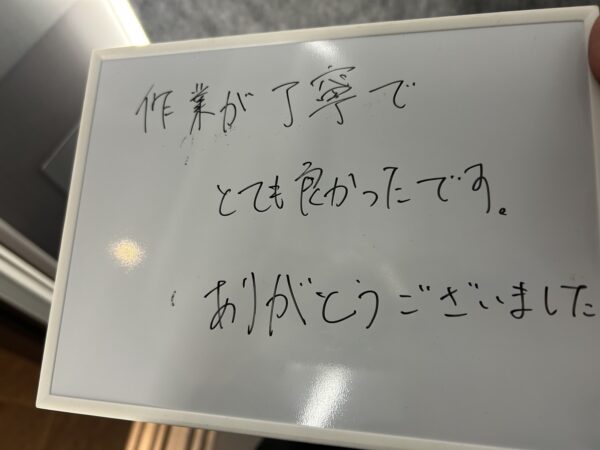 作業が丁寧で
とても良かったです。
ありがとうございました